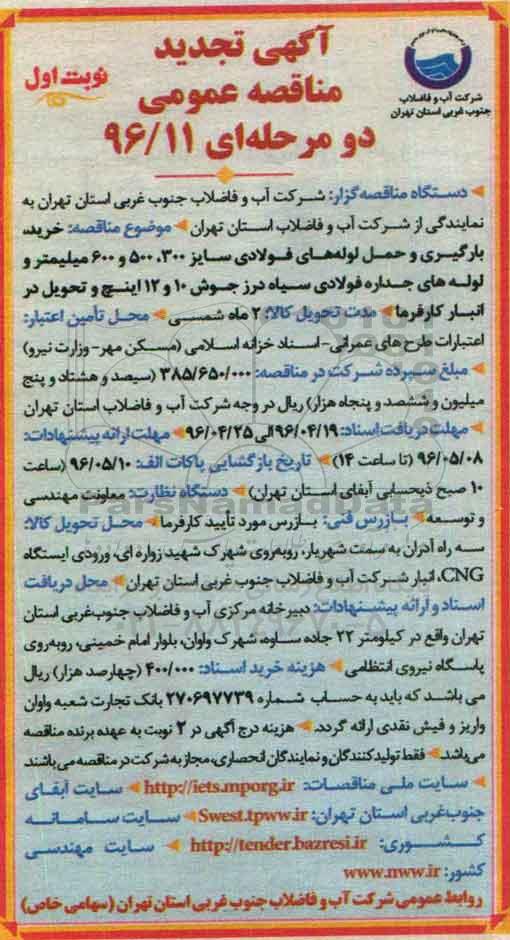 آگهی تجدید
مناقصه عمومی
دو مرحله‌ای ۹۶/۱۱
نوبت اول
شرکت آب و فاضلاب
جنوب غربی استان تهران
دستگاه مناقصه‌گزار: شرکت آب و فاضلاب جنوب غربی استان تهران به
نمایندگی از شرکت آب و فاضلاب استان تهران موضوع مناقصه: خرید،
بارگیری و حمل لوله‌های فولادی سایز ۳۰۰، ۵۰۰ و ۶۰۰ میلیمتر و
لوله های جداره فولادی سیاه درز جوش ۱۰ و ۱۲ اینچ و تحویل در
انبار کارفرما مدت تحویل کالا: ۲ ماه شمسی محل تأمین اعتبار:
اعتبارات طرح های عمرانی- اسناد خزانه اسلامی (مسکن مهر- وزارت نیرو)
مبلغ سپرده شرکت در مناقصه: ۳۸۵/۶۵۰/۰۰۰ (سیصد و هشتاد و پنج
میلیون و ششصد و پنجاه هزار) ریال در وجه شرکت آب و فاضلاب استان تهران
مهلت دریافت اسناد: ۹۶/۰۴/۱۹ الی ۹۶/۰۴/۲۵ مهلت ارائه پیشنهادات:
۹۶/۰۵/۰۸ (تا ساعت ۱۴) تاریخ بازگشایی پاکات الف: ۹۶/۰۵/۱۰ (ساعت
۱۰ صبح ذیحسابی آبفای استان تهران) دستگاه نظارت: معاونت مهندسی
و توسعه بازرس فنی: بازرس مورد تأیید کارفرما محل تحویل کالا:
سه راه آدران به سمت شهریار، روبه‌روی شهرک شهید زواره ای، ورودی ایستگاه
CNG، انبار شرکت آب و فاضلاب جنوب غربی استان تهران محل دریافت
اسناد و ارائه پیشنهادات: دبیرخانه مرکزی آب و فاضلاب جنوب‌غربی استان
تهران واقع در کیلومتر ۲۲ جاده ساوه، شهرک واوان، بلوار امام خمینی، روبه‌روی
پاسگاه نیروی انتظامی هزینه خرید اسناد: ۴۰۰/۰۰۰ (چهارصد هزار) ریال
می باشد که باید به حساب شماره ۲۷۰۶۹۷۷۳۹ بانک تجارت شعبه واوان
واریز و فیش نقدی ارائه گردد. هزینه درج آگهی در ۲ نوبت به عهده برنده مناقصه
می‌باشد. فقط تولیدکنندگان و نمایندگان انحصاری، مجاز به شرکت در مناقصه می‌باشند
سایت ملی مناقصات: http://iets.mporg.ir سایت آبفای
جنوب‌غربی استان تهران: Swest.tpww.ir سایت سامانه
کشوری: http://tender.bazresi.ir سایت مهندسی
کشور: www.nww.ir
روابط عمومی شرکت آب و فاضلاب جنوب غربی استان تهران (سهامی خاص)
ParsNamadData